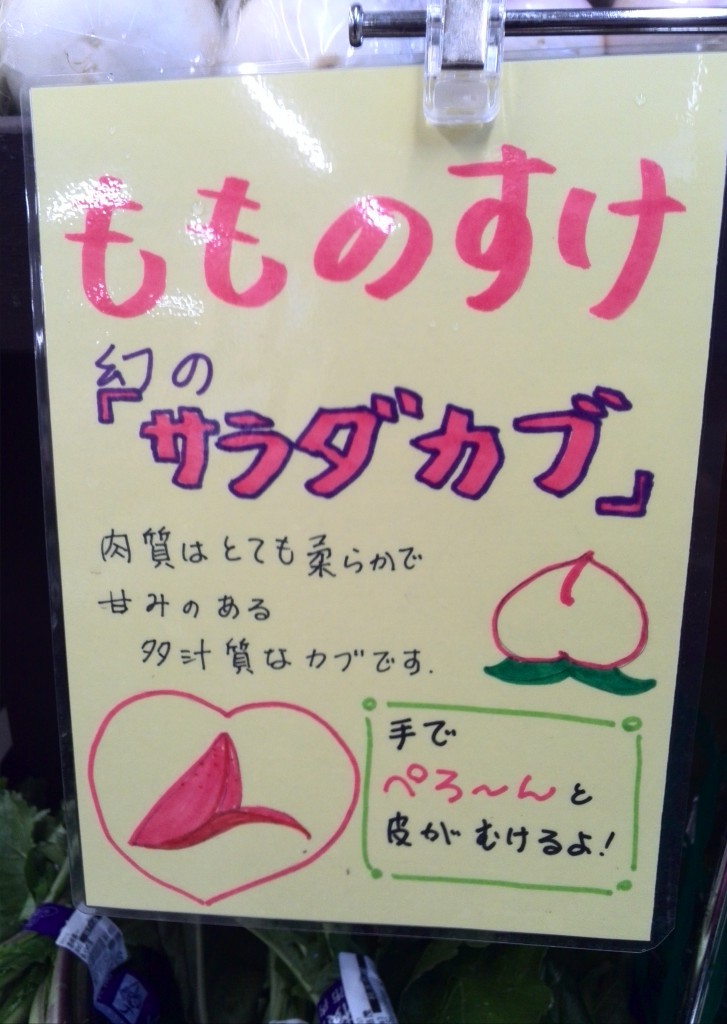 もものすけ
幻の
『サラダカブ』
肉質はとても柔らかで
甘みのある
多汁質なカブです.
手で
ぺろ〜んと
皮がむけるよ!